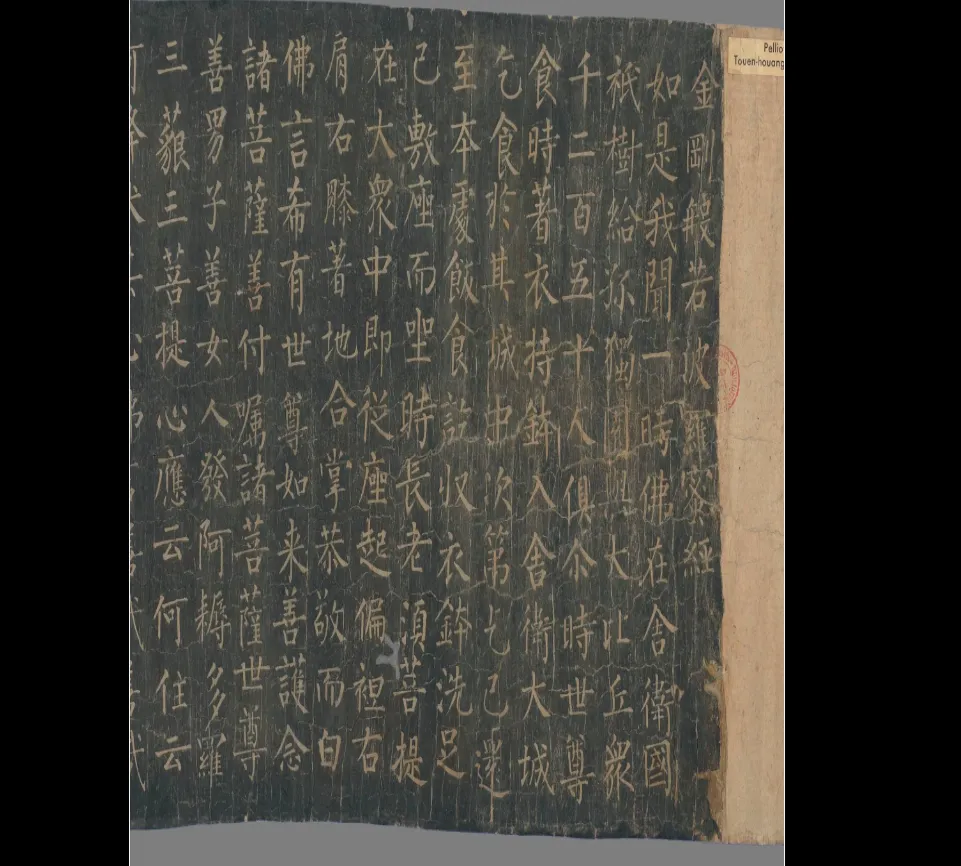 Pellio
Touen-houang
金剛般若波羅蜜經
如是我聞一時佛在舍衛國
祇樹給孤獨園與大比丘衆
千二百五十人俱尒時世尊
食時著衣持鉢入舍衛大城
乞食於其城中次第乞已還
至本處飯食訖収衣鉢洗足
已敷座而坐時長老須菩提
在大衆中即從座起偏袒右
肩右膝著地合掌恭敬而白
佛言希有世尊如来善護念
諸菩薩善付嘱諸菩薩世尊
善男子善女人發阿耨多羅
三藐三菩提心應云何住云